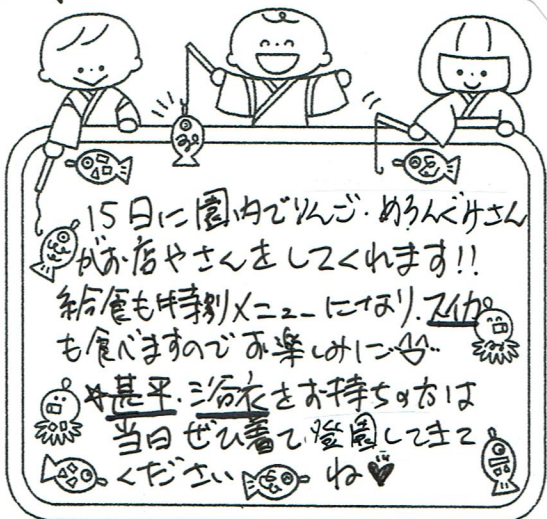 15日に園内でりんご・めろんぐみさん
がお店やさんをしてくれます!!
給食も特別メニューになり、スイカ
も食べますのでお楽しみに
☆甚平・浴衣をお持ちの方は
当日ぜひ着て登園してきて
くださいね♥